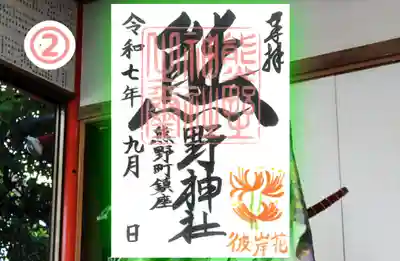 ②
奉拝
熊野神社
熊野町鎮座
令和七年 九月 日
彼岸花